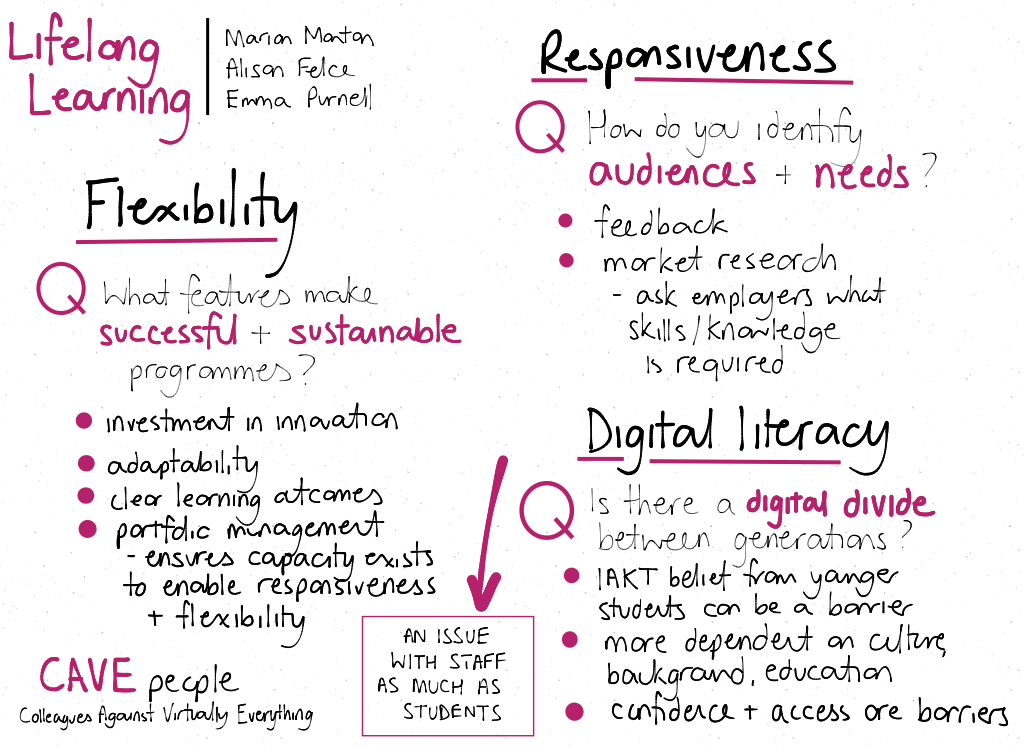 Lifelong
Learning
Marion Manton
Alison Felce
Emma Purnell
Flexibility
Q What features make
successful + sustainable
programmes?
• investment in innovation
• adaptability
• clear learning outcomes
• portfolio management
- ensures capacity exists
to enable responsiveness
+ flexibility
CAVE people
Colleagues Against Virtually Everything
Responsiveness
Q How do you identify
audiences + needs?
• feedback
• market research
- ask employers what
skills/knowledge
is required
Digital literacy
Q Is there a digital divide
between generations?
• IAKT belief from younger
students can be a barrier
• more dependent on culture,
background, education
• confidence + access are barriers
AN ISSUE
WITH STAFF
AS MUCH AS
STUDENTS